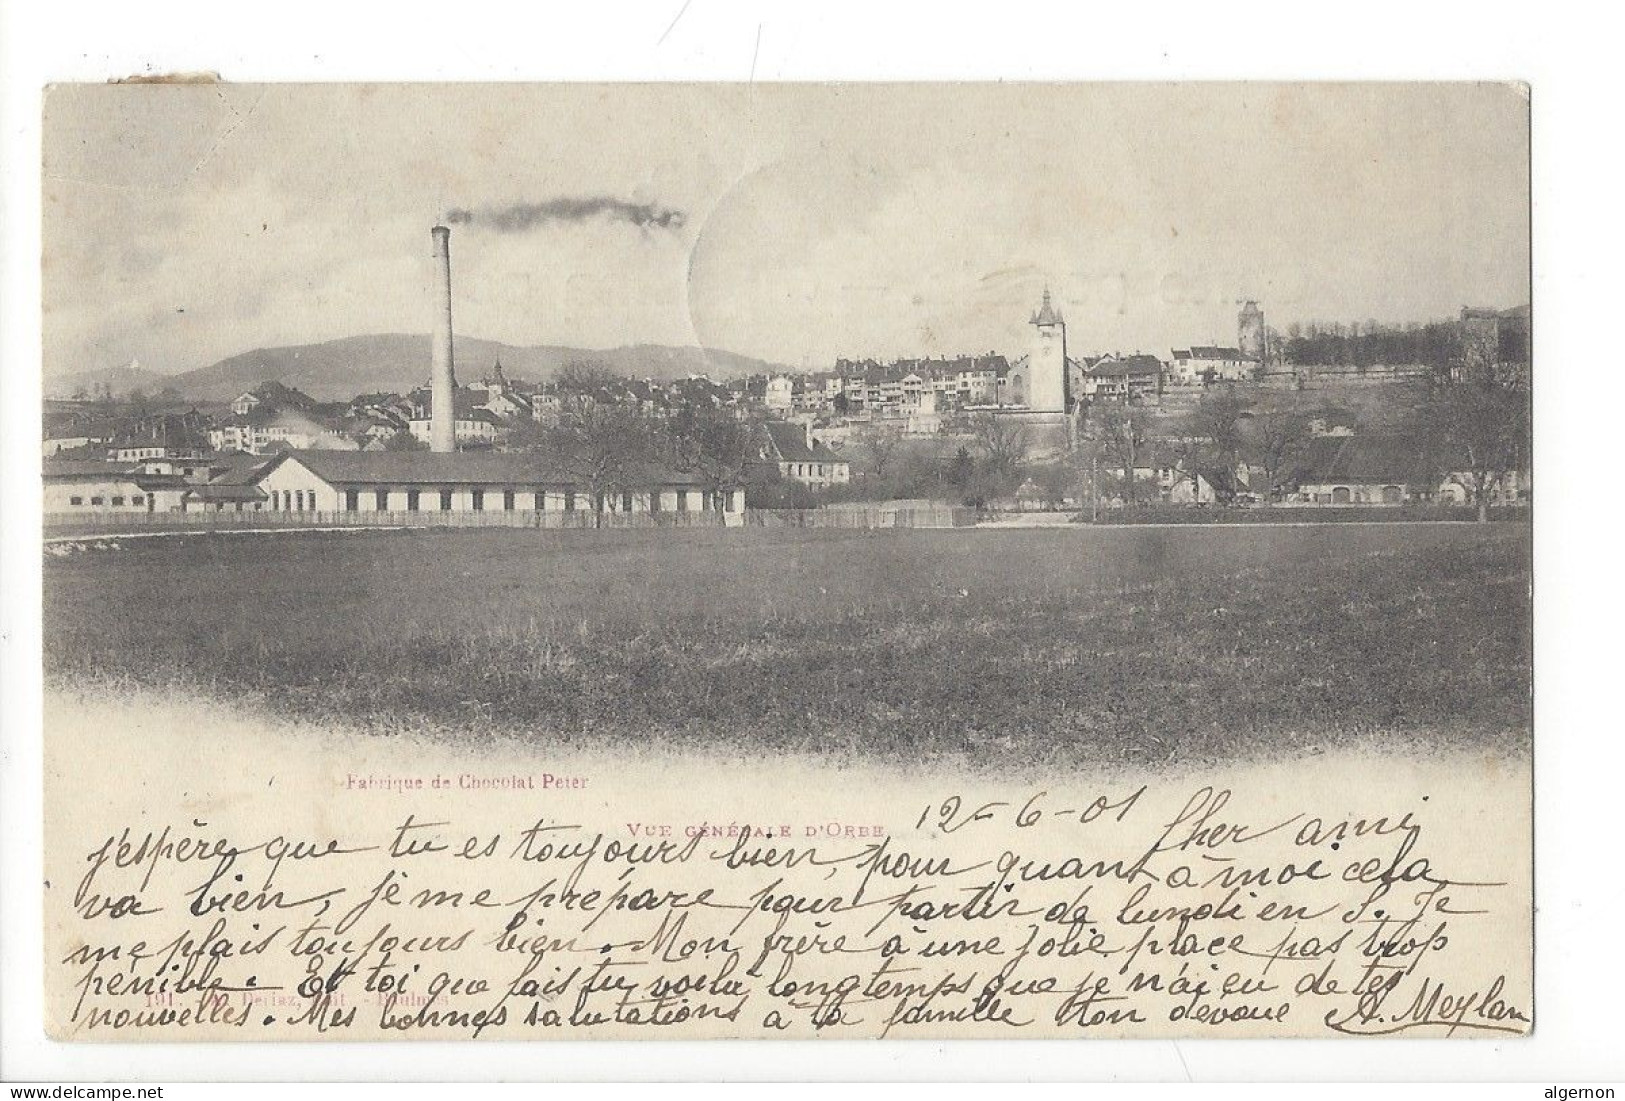 Fabrique de Chocolat Peter
VUE GÉNÉRALE D'ORBE
12-6-01 Cher ami
j'espère que tu es toujours bien, pour quant à moi cela
va bien, je me prépare pour partir de lundi en S. Je
me plais toujours bien. Mon frère à une jolie place pas trop
pénible. Et toi que fais tu voilà longtemps que je n'ai eu de tes
191. Deriaz, Edit. - Baulmes
nouvelles. Mes bonnes salutations à ta famille ton dévoué A. Meylan
algernon